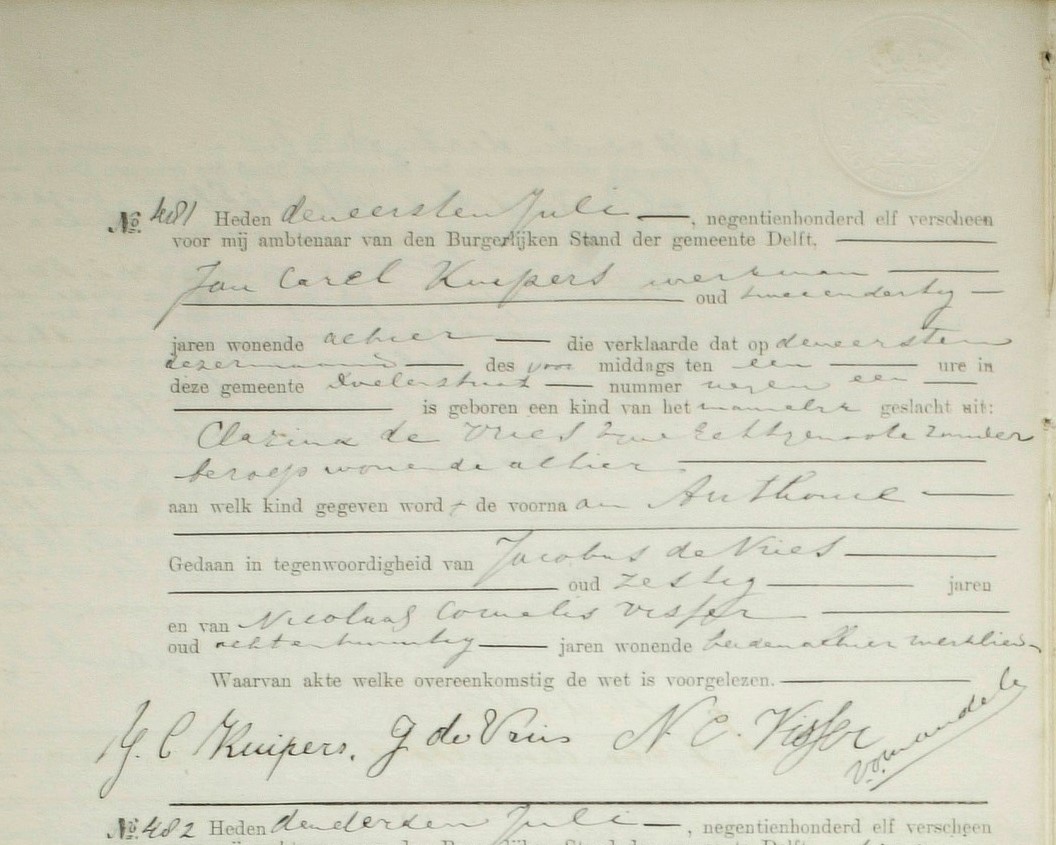 No. 481 Heden den eersten Juli —, negentienhonderd elf verscheen
voor mij ambtenaar van den Burgerlijken Stand der gemeente Delft, —
Jan Carel Kuipers werkman —
— oud twee en dertig —
jaren wonende alhier — die verklaarde dat op den eersten
dezer maand — des voor middags ten een — ure in
deze gemeente Doelenstraat — nummer negen een —
— is geboren een kind van het mannelijk geslacht uit:
Clazina de Vries zijne Echtgenoote zonder
beroep wonende alhier —
aan welk kind gegeven word t de voorna am Anthonie —
Gedaan in tegenwoordigheid van Jacobus de Vries —
— oud zestig — jaren
en van Nicolaas Cornelis Visser —
oud acht en twintig — jaren wonende beiden alhier werklieden
Waarvan akte welke overeenkomstig de wet is voorgelezen. —
J. C Kuipers. J de Vries N. C. Visser
No. 482 Heden den dersten Juli —, negentienhonderd elf verscheen